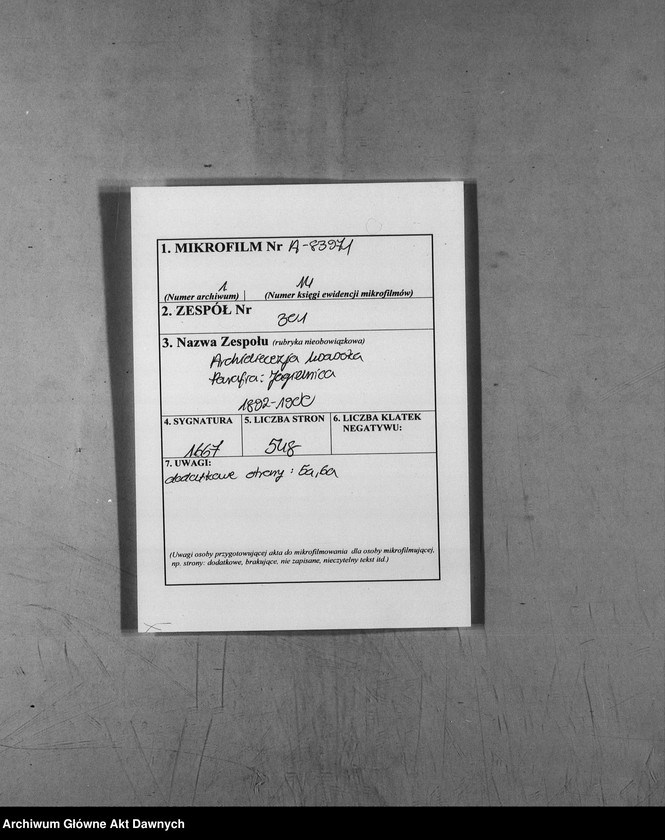 1. MIKROFILM Nr A-83971
1 14
(Numer archiwum) (Numer księgi ewidencji mikrofilmów)
2. ZESPÓŁ Nr
301
3. Nazwa Zespołu (rubryka nieobowiązkowa)
Archidiecezja Lwowska
Parafia: Jagielnica
1892-1900
4. SYGNATURA 5. LICZBA STRON 6. LICZBA KLATEK
NEGATYWU:
1667 548
7. UWAGI:
dodatkowe strony: 5a, 6a
(Uwagi osoby przygotowującej akta do mikrofilmowania dla osoby mikrofilmującej,
np. strony: dodatkowe, brakujące, nie zapisane, nieczytelny tekst itd.)
Archiwum Główne Akt Dawnych